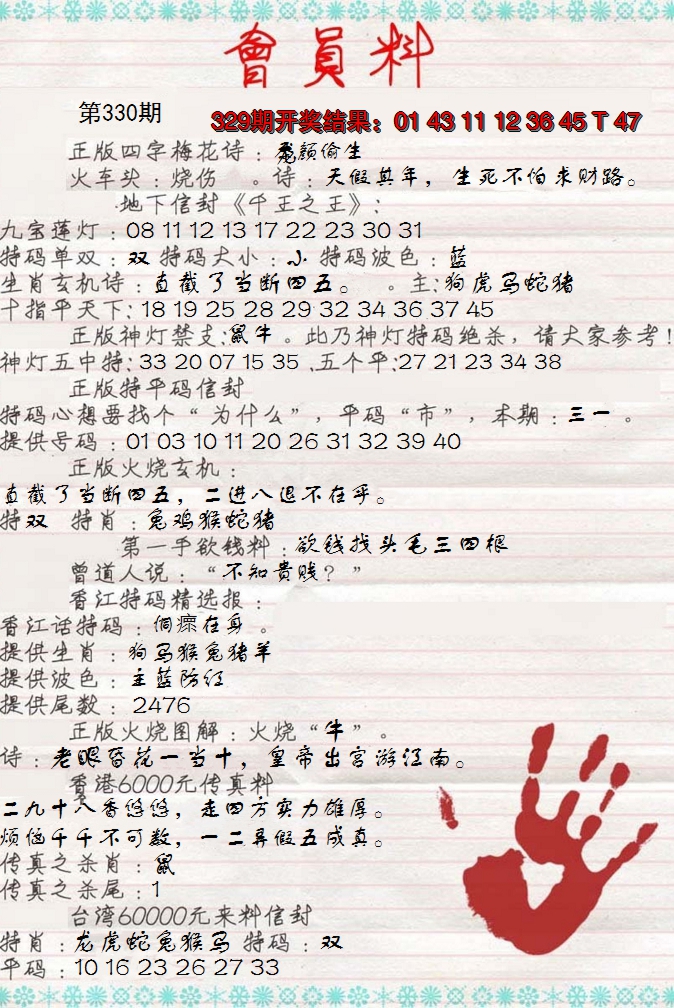 會員料
第330期
329期开奖结果：01 43 11 12 36 45 T 47
正版四字梅花诗：龙颜偷生
火车头：烧伤 。诗：天假其年，生死不怕求财路。
地下信封《千王之王》：
九宝莲灯：08 11 12 13 17 22 23 30 31
特码单双：双 特码大小：小 特码波色：蓝
生肖玄机诗：直截了当断四五。 。主：狗虎马蛇猪
十指平天下：18 19 25 28 29 32 34 36 37 45
正版神灯禁支：鼠牛。此乃神灯特码绝杀，请大家参考!
神灯五中特：33 20 07 15 35 .五个平：27 21 23 34 38
正版特平码信封
特码心想要找个“为什么”，平码“市”，本期：三一。
提供号码：01 03 10 11 20 26 31 32 39 40
正版火烧玄机：
直截了当断四五，二进八退不在乎。
特双 特肖：兔鸡猴蛇猪
第一手欲钱料：欲钱找头毛三四根
曾道人说：“不知贵贱？”
香江特码精选报：
香江话特码：侗瘝在身。
提供生肖：狗马猴兔猪羊
提供波色：主蓝防红
提供尾数：2476
正版火烧图解：火烧“牛”。
诗：老眼昏花一当十，皇帝出宫游江南。
香港6000元传真料
二九十八香悠悠，走四方实力雄厚。
烦恼千千不可数，一二弄假五成真。
传真之杀肖：鼠
传真之杀尾：1
台湾60000元来料信封
特肖：龙虎蛇兔猴马 特码：双
平码：10 16 23 26 27 33